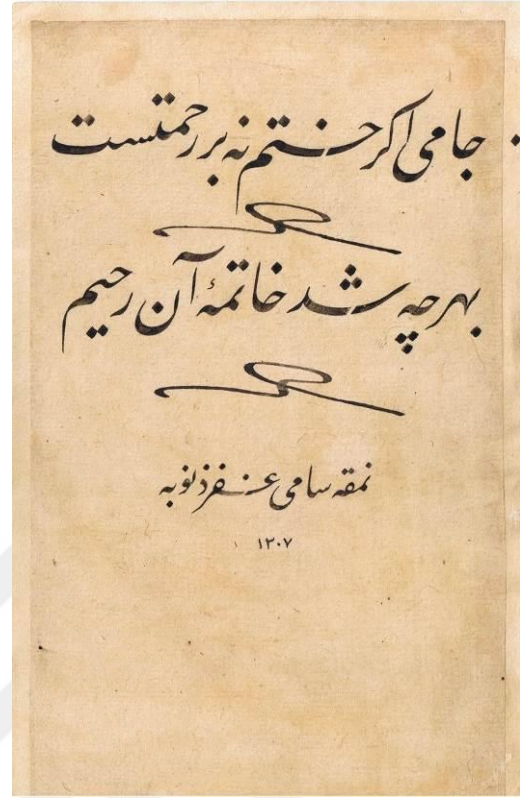 جامی اگر ختم نه بر رحمتست
بهر چه شد خاتمهٔ آن رحیم
نمقه سامی غفر ذنوبه
۱۳۰۷